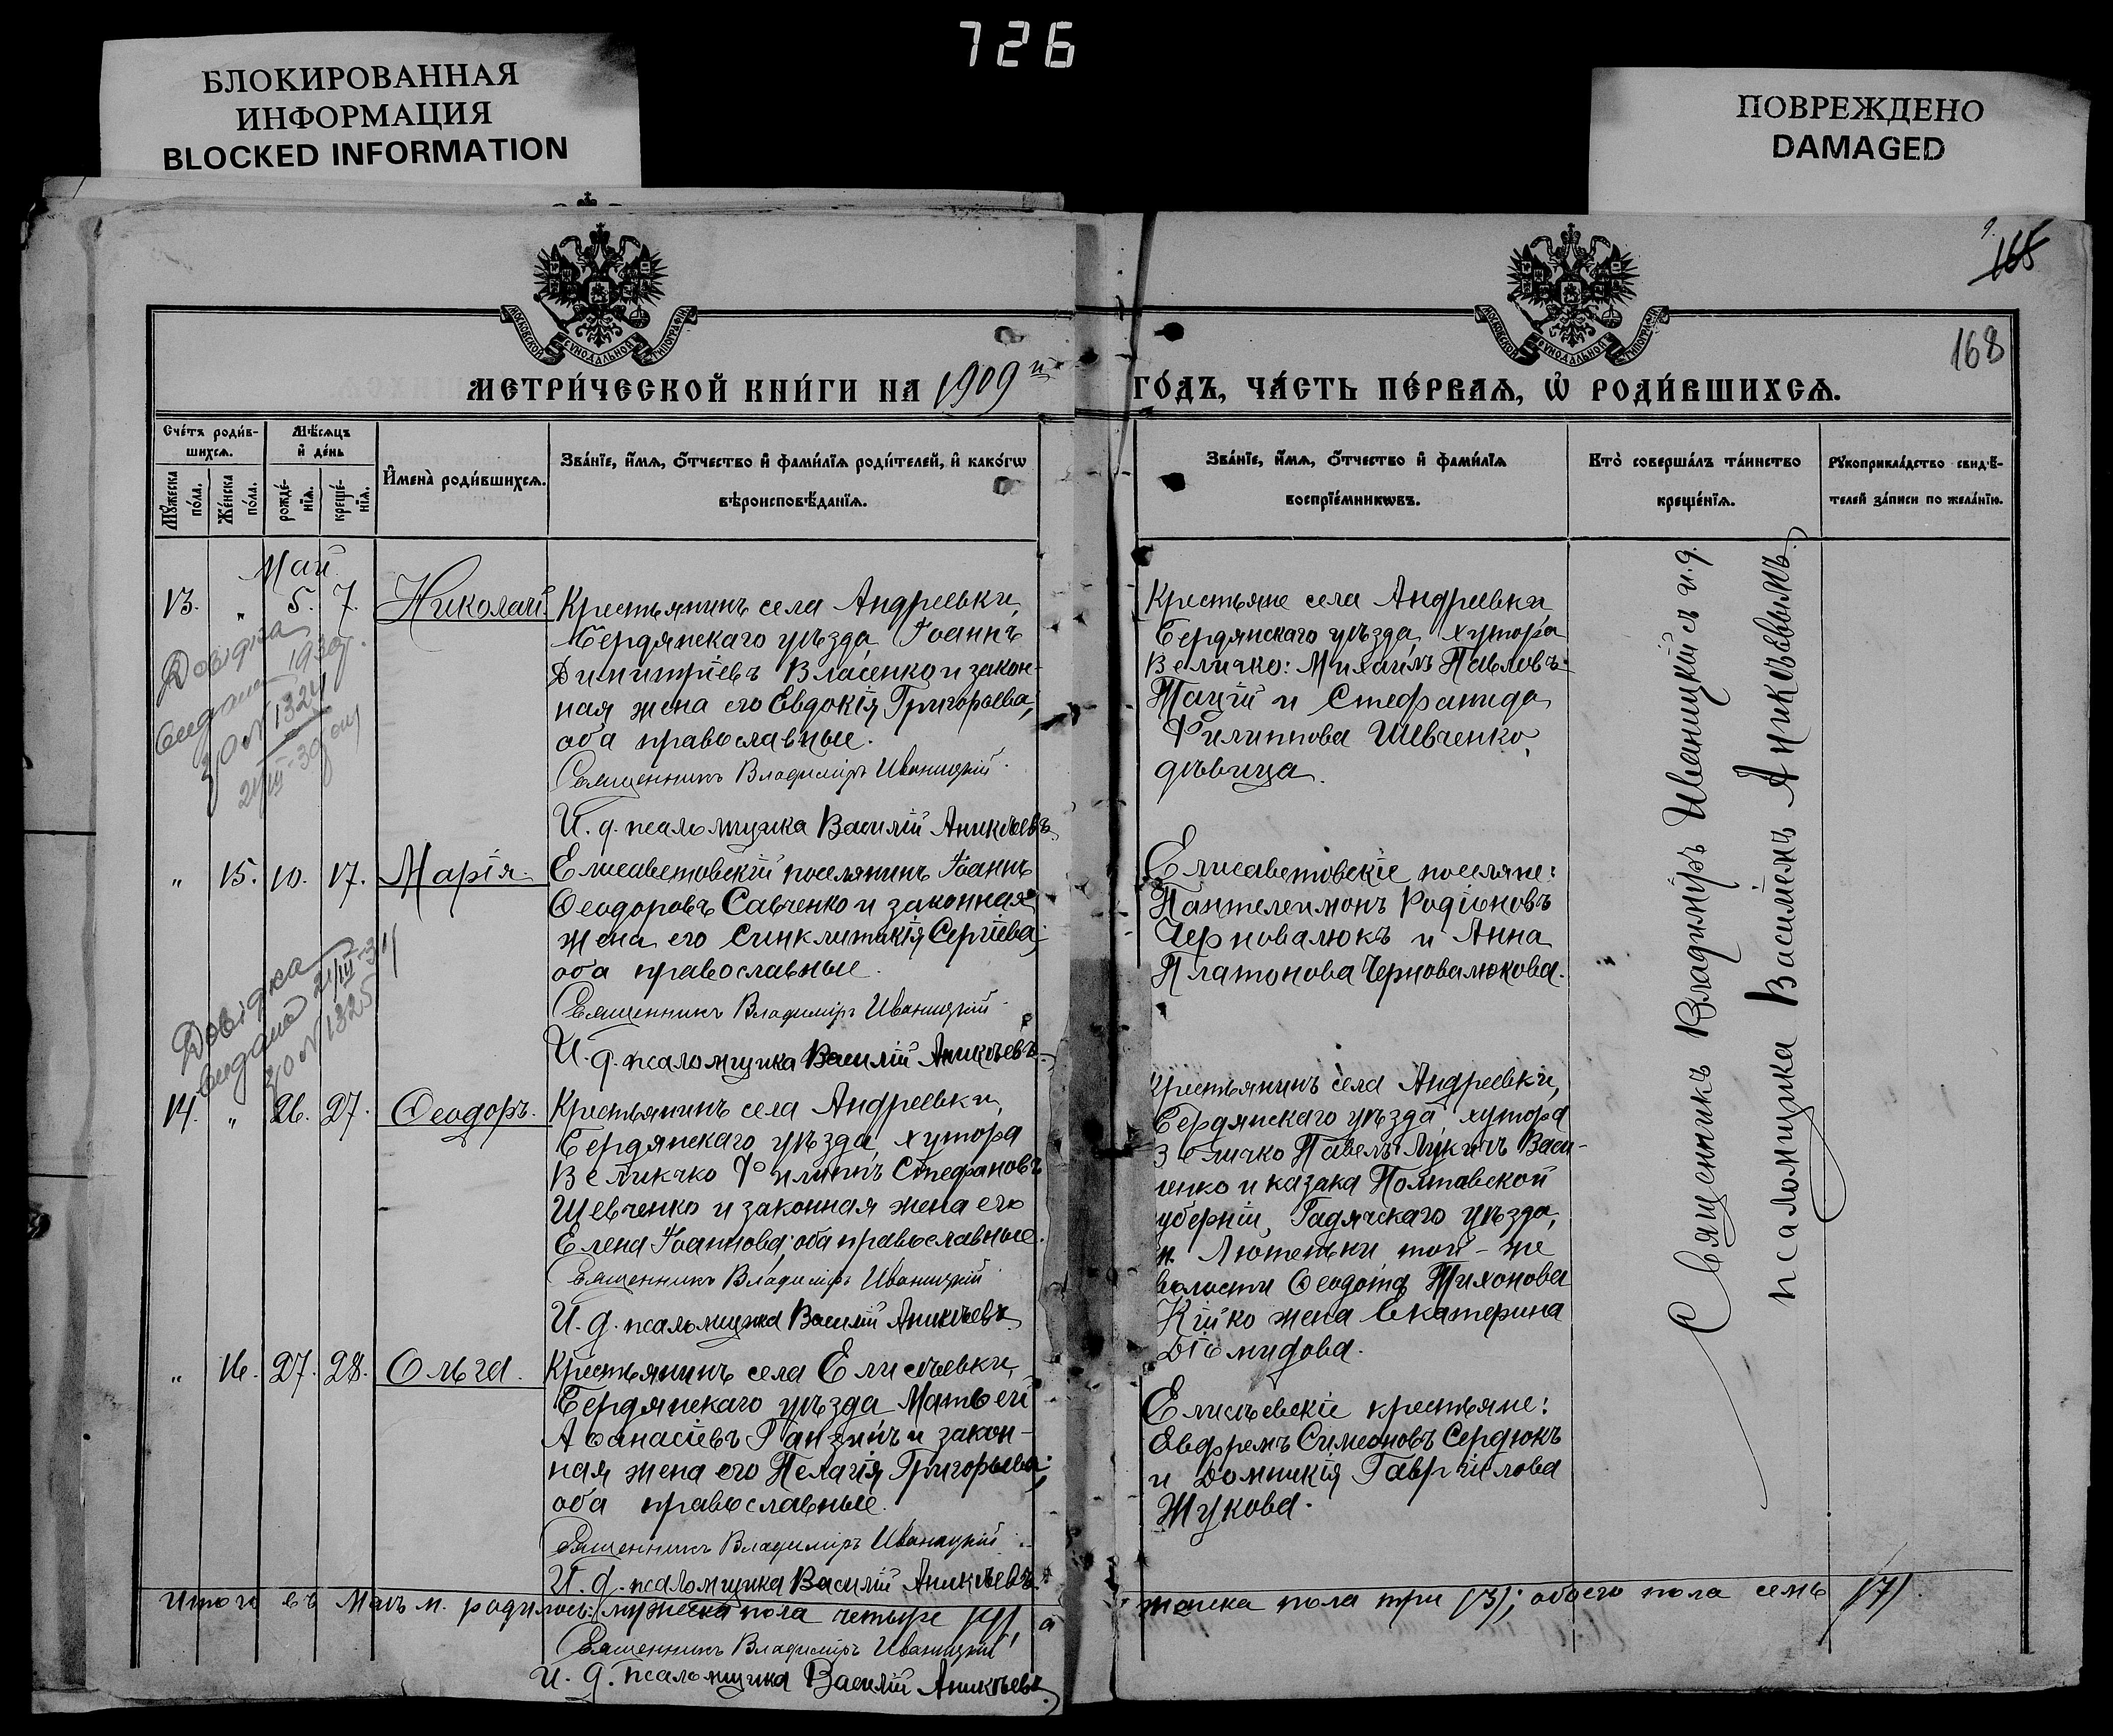 726
БЛОКИРОВАННАЯ
ИНФОРМАЦИЯ
BLOCKED INFORMATION
ПОВРЕЖДЕНО
DAMAGED
165
168
МОСКОВСКОЙ СѴНОДАЛЬНОЙ ТИПОГРАФІИ
МОСКОВСКОЙ СѴНОДАЛЬНОЙ ТИПОГРАФІИ
МЕТРИ́ЧЕСКОЙ КНИ́ГИ НА 1909й
ГО́ДЪ, ЧА́СТЬ ПЕ́РВАѦ, Ѿ РОДИ́ВШИХСѦ.
Сче́тъ роди́в-
шихсѧ.
Мѣ́сѧцъ
и҆ де́нь
Мꙋ́жеска
по́ла.
Же́нска
по́ла.
рожде́-
нїѧ.
креще́-
нїѧ.
И҆мена̀ роди́вшихсѧ.
Зва́нїе, и҆́мѧ, ѻ҆́тчество и҆ фами́лїѧ роди́телей, и҆ како́гѡ
вѣроисповѣ́данїѧ.
Зва́нїе, и҆́мѧ, ѻ҆́тчество и҆ фами́лїѧ
воспрїе́мникѡвъ.
Кто̀ соверша́лъ та́инство
креще́нїѧ.
Рꙋкоприкла́дство свидѣ́-
телей за́писи по жела́нїю.
Май
13. " 5. 7. Николай
Крестьянинъ села Андреевки,
Бердянскаго уѣзда, Іоаннъ
Димитріевъ Власенко и закон-
ная жена его Евдокія Григорьева,
оба православные.
Священникъ Владиміръ Иваницкій
И. д. псаломщика Василій Аникѣевъ
Крестьяне села Андреевки
Бердянскаго уѣзда, хутора
Величко: Михаилъ Павловъ
Тацій и Стефанида
Филиппова Шевченко,
дѣвица.
Довідка
видана 1930р.
ЗО № 1324
21/III-30
" 15. 10. 17. Марія.
Елисаветовскій поселянинъ Іоаннъ
Ѳеодоровъ Савченко и законная
жена его Синклитикія Сергіева;
оба православные.
Священникъ Владиміръ Иваницкій
И. д. псаломщика Василій Аникѣевъ
Елисаветовскіе поселяне:
Пантелеимонъ Родіоновъ
Черновалюкъ и Анна
Платонова Черновалюкова.
Довідка
видана 21/III-31
ЗО № 1325
14. " 26. 27. Ѳеодоръ.
Крестьянинъ села Андреевки,
Бердянскаго уѣзда, хутора
Величко Филиппъ Стефановъ
Шевченко и законная жена его
Елена Іоаннова; оба православные.
Священникъ Владиміръ Иваницкій
И. д. псаломщика Василій Аникѣевъ
Крестьянинъ села Андреевки,
Бердянскаго уѣзда хутора
Величко Павелъ Лукичъ Васи-
ленко и казака Полтавской
губерніи, Гадячскаго уѣзда,
м. Лютеньки той-же
волости Ѳеодота Тихонова
Кійко жена Екатерина
Діомидова.
" 16. 27. 28. Ольга.
Крестьянинъ села Елисѣевки,
Бердянскаго уѣзда Матѳей
Аѳанасіевъ Ганзинъ и закон-
ная жена его Пелагія Григорьева;
оба православные.
Священникъ Владиміръ Иваницкій
И. д. псаломщика Василій Аникѣевъ
Елисѣевскіе крестьяне:
Евфремъ Симеоновъ Сердюкъ
и Домникія Гавріилова
Жукова.
Священникъ Владиміръ Иваницкій съ и. д.
псаломщика Василіемъ Аникѣевымъ.
Итого въ Маѣ м. родилось: мужеска пола четыре (4), а
женска пола три (3); обоего пола семь (7).
Священникъ Владиміръ Иваницкій
И. д. псаломщика Василій Аникѣевъ